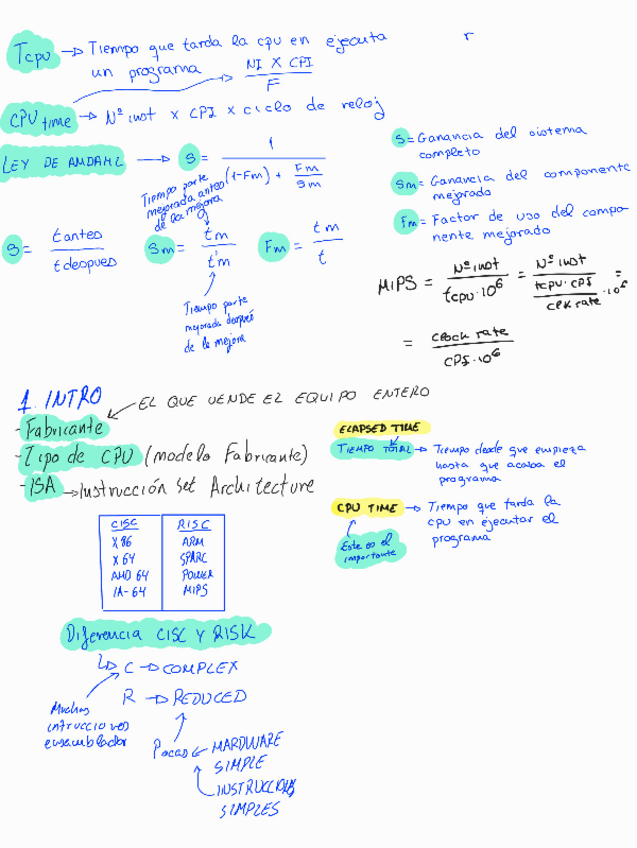 Tcpu → Tiempo que tarda la cpu en ejecuta r
un programa → NI X CPI / F
CPU time → Nº inst x CPI x ciclo de reloj
LEY DE AMDAHL → S = 1 / (1-Fm) + Fm / Sm
S = Ganancia del sistema
completo
Sm = Ganancia del componente
mejorado
Fm = Factor de uso del compo-
nente mejorado
Tiempo parte
mejorada antes
de la mejora
S = t antes / t despues
Sm = tm / t'm
Fm = tm / t
Tiempo parte
mejorada después
de la mejora
MIPS = Nº inst / tcpu·10⁶ = Nº inst / tcpu·CPI / clk rate ·10⁶ =
= clock rate / CPI·10⁶
1. INTRO
EL QUE VENDE EL EQUIPO ENTERO
- Fabricante
- Tipo de CPU (modelo Fabricante)
- ISA → Instrucción Set Architecture
ELAPSED TIME
TIEMPO TOTAL → Tiempo desde que empieza
hasta que acaba el
programa
CPU TIME → Tiempo que tarda la
cpu en ejecutar el
programa
Este es el
importante
CISC RISC
X86 ARM
X64 SPARC
AMD 64 POWER
IA-64 MIPS
Diferencia CISC Y RISK
C → COMPLEX
R → REDUCED
Muchas
intrucciones
ensamblador
Pocas HARDWARE
SIMPLE
INSTRUCCIONES
SIMPLES